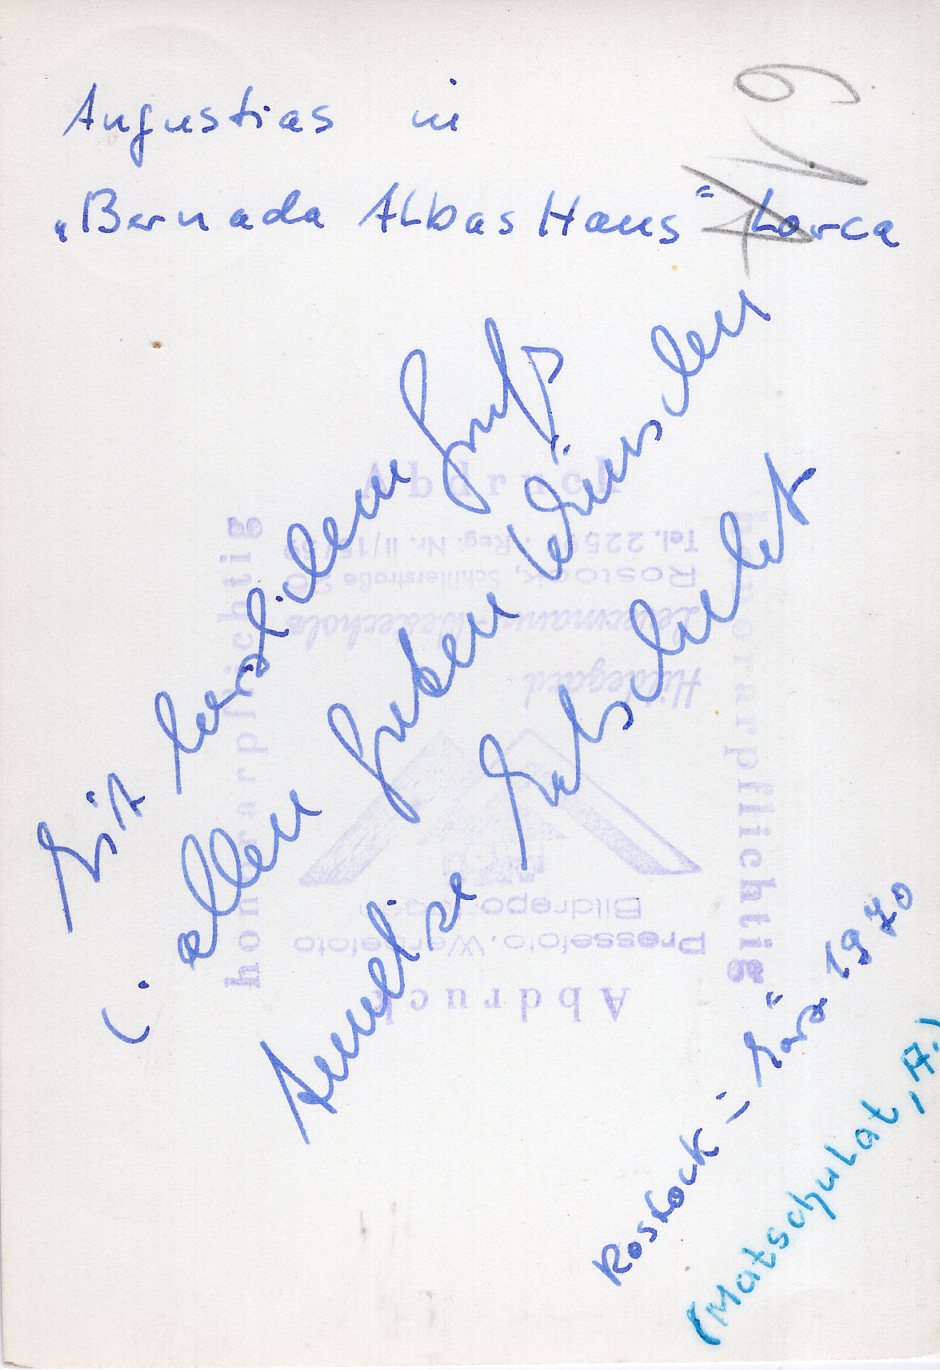 Angustias in
„Bernada Albas Haus" Lorca
Mit herzlichem Gruß
allen guten Wünschen
Annelise Matschulat
Rostock, März 1970
(Matschulat, A.)
Abdruck
honorarpflichtig
honorarpflichtig
Hildegard
Rostock, Schillerstraße
Tel. 225 Reg. Nr. II/15/
Pressefoto. Werbefoto
Bildreportagen
Abdruck